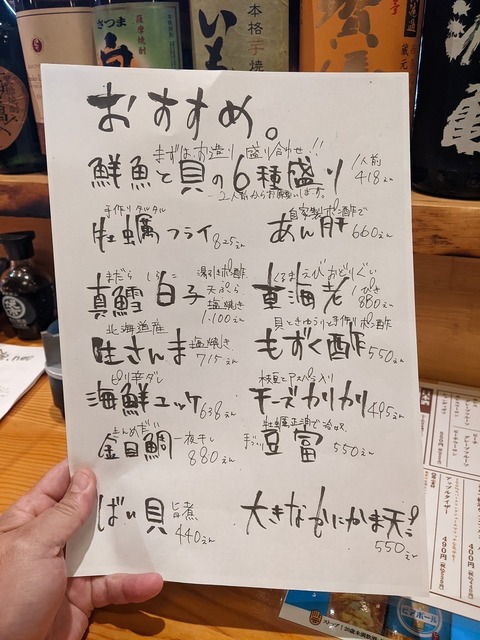 さつま
薩摩焼酎
白
本格芋焼
いも
蔵元
おすすめ。
まずはお造り盛り合せ!!
鮮魚と貝の6種盛り 1人前 418えん
2人前からお願いします。
手作りタルタル
牡蠣フライ 825えん
自家製ポン酢で
あん肝 660えん
まだら しらこ
真鱈 白子
湯引きポン酢
天ぷら
塩焼き
1,100えん
くるまえびおどりぐい
車海老 1ぴき 880えん
北海道産
生さんま 塩焼き 715えん
貝ときゅうりと手作りポン酢
もずく酢 550えん
ピリ辛ダレ
海鮮ユッケ 638えん
枝豆とアスパラ入り
チーズカリカリ 495えん
きんめだい
金目鯛 一夜干し 880えん
牡蠣正油で冷奴
豆富 550えん
ばい貝 旨煮 440えん
大きなかにかま天ぷら 550えん
アップルタイザー
490円
400円